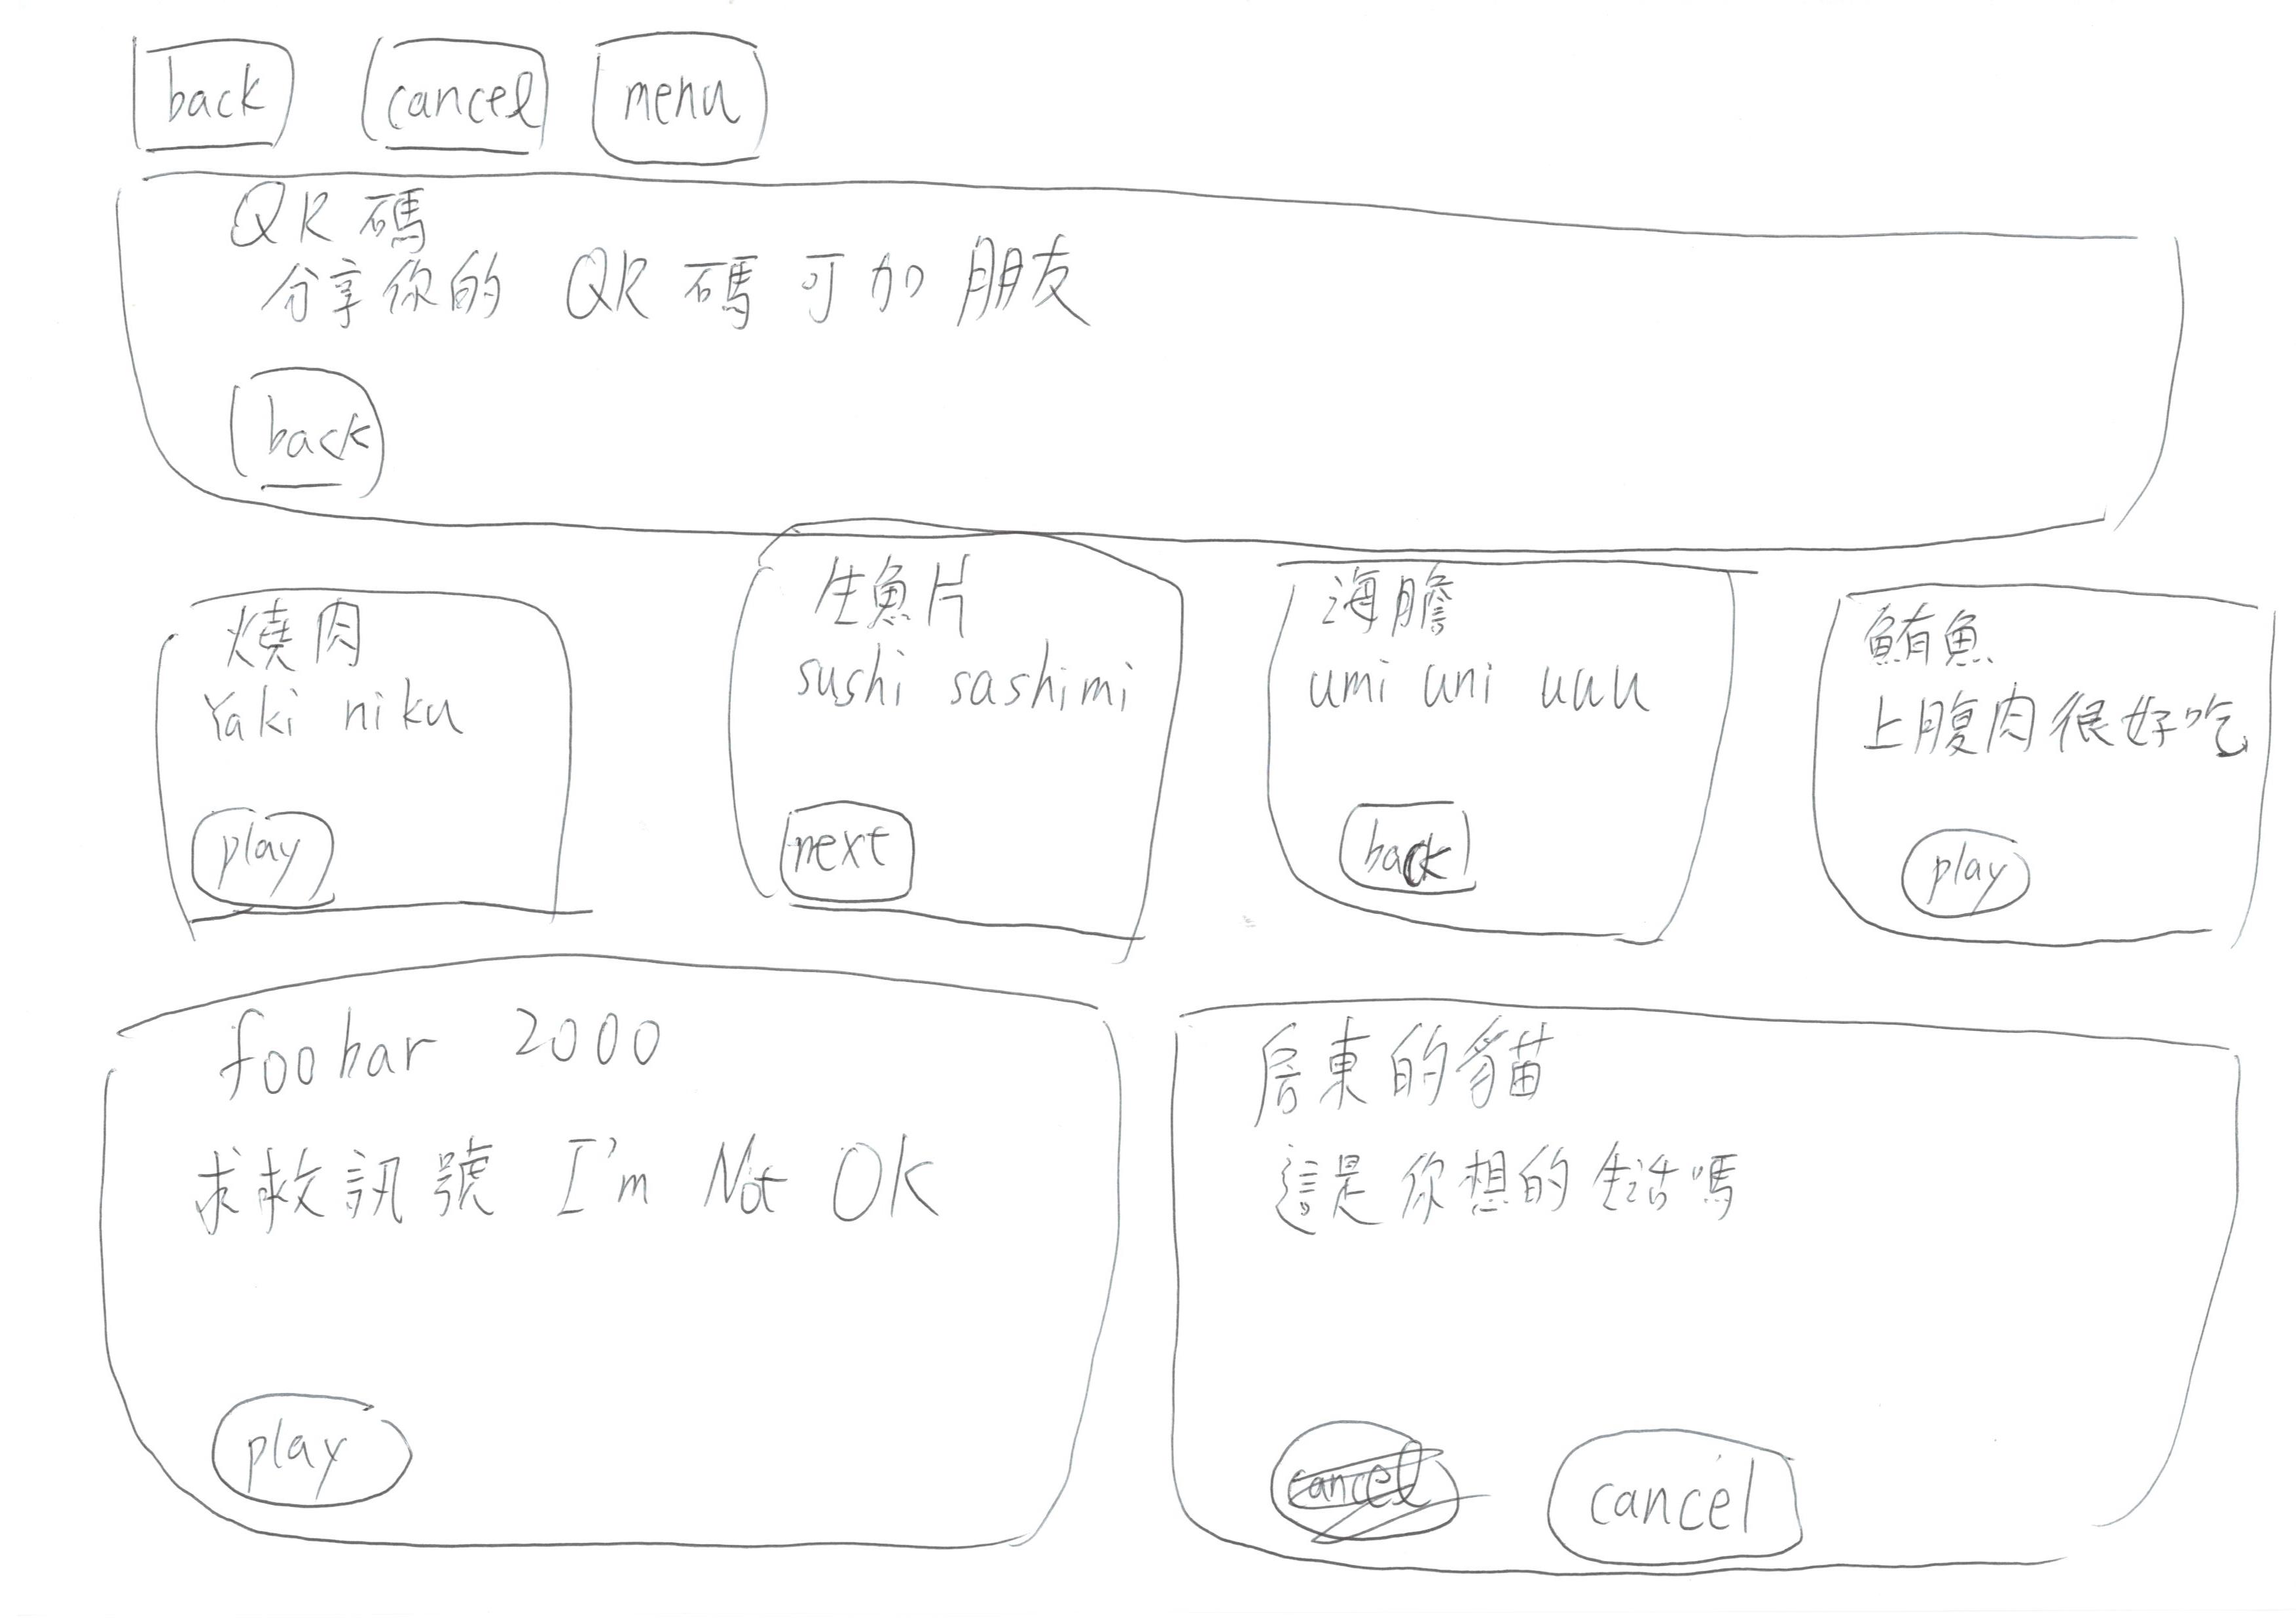 back cancel menu
QR 碼
分享你的 QR 碼可加朋友
back
燒肉
Yaki niku
play
生魚片
sushi sashimi
next
海膽
umi uni uuu
back
鮪魚
上腹肉很好吃
play
foobar 2000
求救訊號 I'm Not OK
play
房東的貓
這是你想的生活嗎
cancel